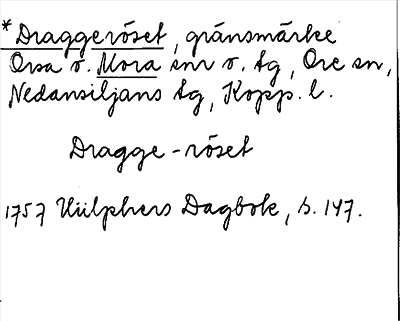 *Draggeröset, gränsmärke
Orsa o. Mora snr o. tg, Ore sn,
Nedansiljans tg, Kopp. l.
Dragge-röset
1757 Hülphers Dagbok, s. 147.